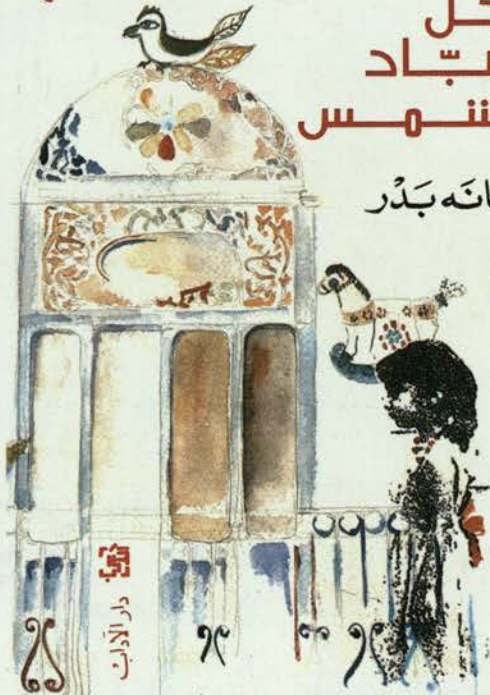 ـبّـاد
شـمـس
ـانَه بَدْر
دار الآداب